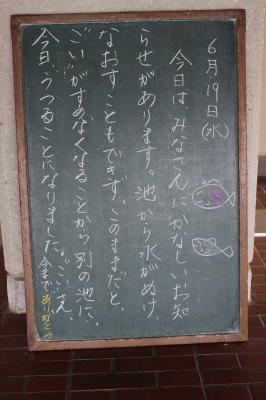 6月19日(水)
今日は、みなさんにかなしいお知
らせがあります。池から水がぬけ、
なおすこともできず、このままだと、
"こい"がすめなくなることから別の池に、
今日、うつることになりました。"こい"さん、
今まで、ありがとう